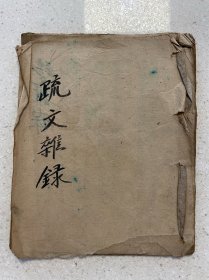 疏文雜録